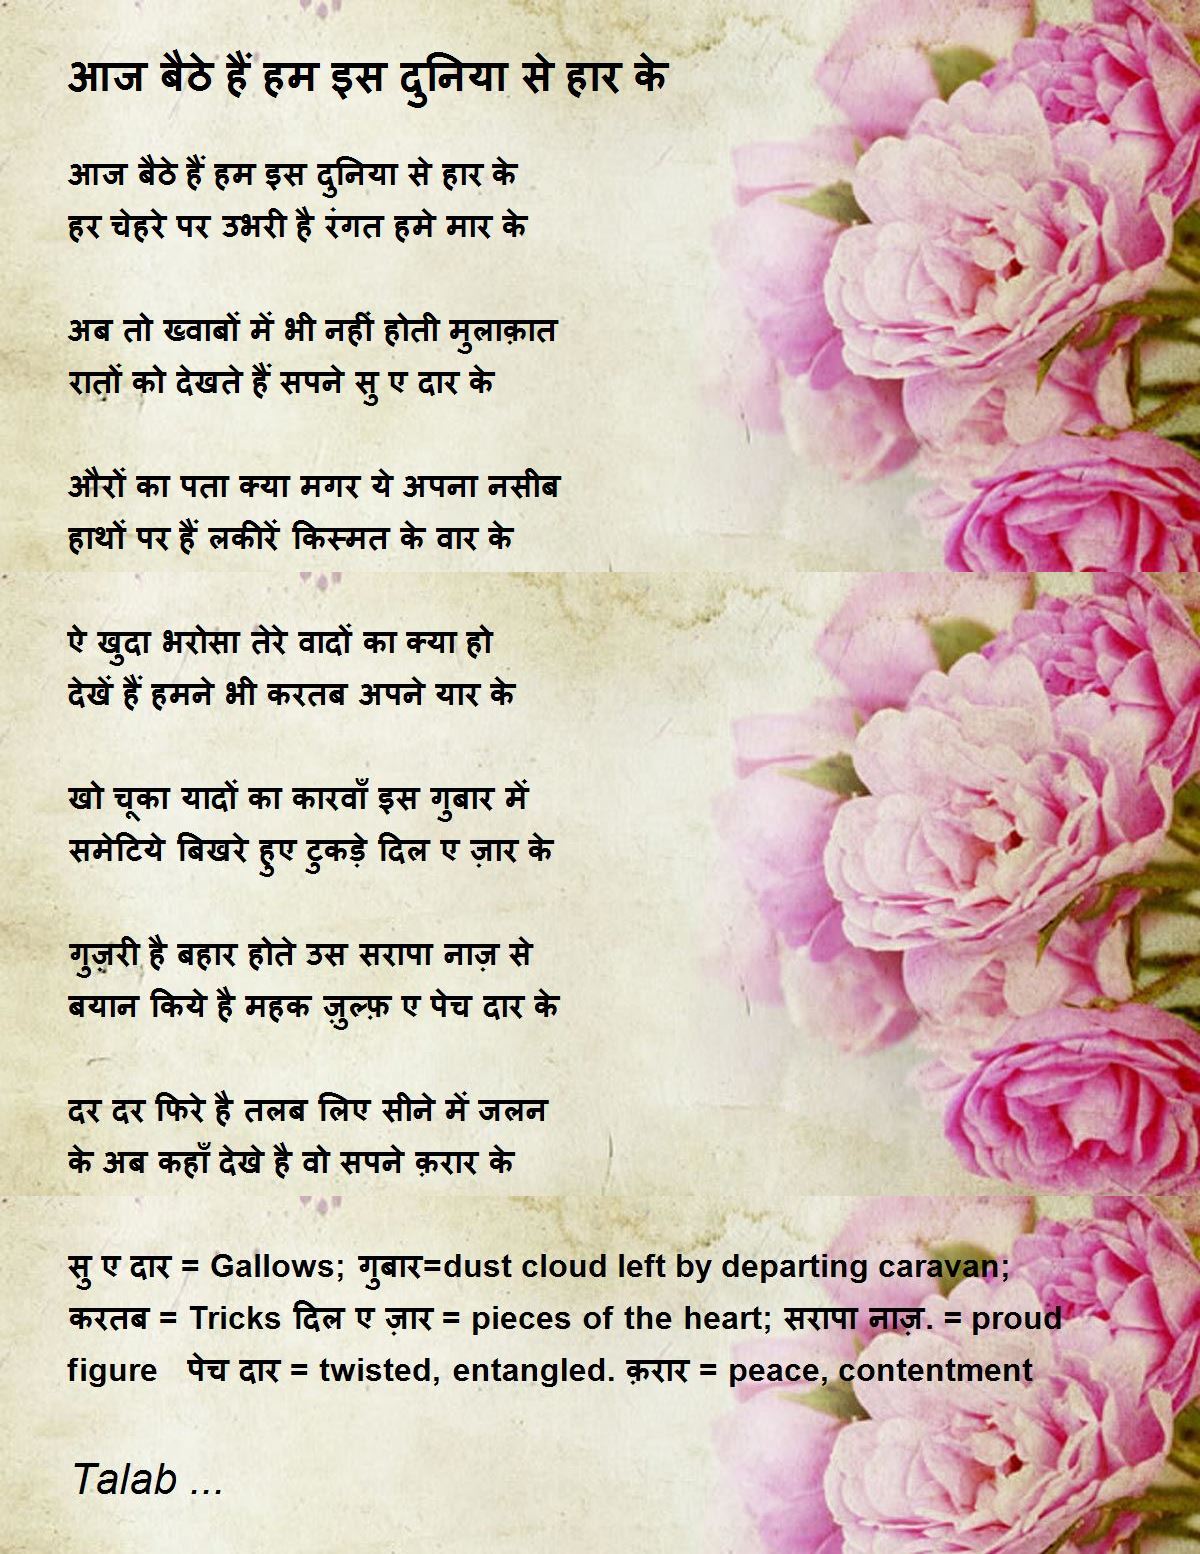 आज बैठे हैं हम इस दुनिया से हार के
आज बैठे हैं हम इस दुनिया से हार के
हर चेहरे पर उभरी है रंगत हमे मार के
अब तो ख्वाबों में भी नहीं होती मुलाक़ात
रातों को देखते हैं सपने सु ए दार के
औरों का पता क्या मगर ये अपना नसीब
हाथों पर हैं लकीरें किस्मत के वार के
ऐ खुदा भरोसा तेरे वादों का क्या हो
देखें हैं हमने भी करतब अपने यार के
खो चूका यादों का कारवाँ इस गुबार में
समेटिये बिखरे हुए टुकड़े दिल ए ज़ार के
गुज़री है बहार होते उस सरापा नाज़ से
बयान किये है महक ज़ुल्फ़ ए पेच दार के
दर दर फिरे है तलब लिए सीने में जलन
के अब कहाँ देखे है वो सपने क़रार के
सु ए दार = Gallows; गुबार=dust cloud left by departing caravan;
करतब = Tricks दिल ए ज़ार = pieces of the heart; सरापा नाज़. = proud
figure पेच दार = twisted, entangled. क़रार = peace, contentment
Talab ...